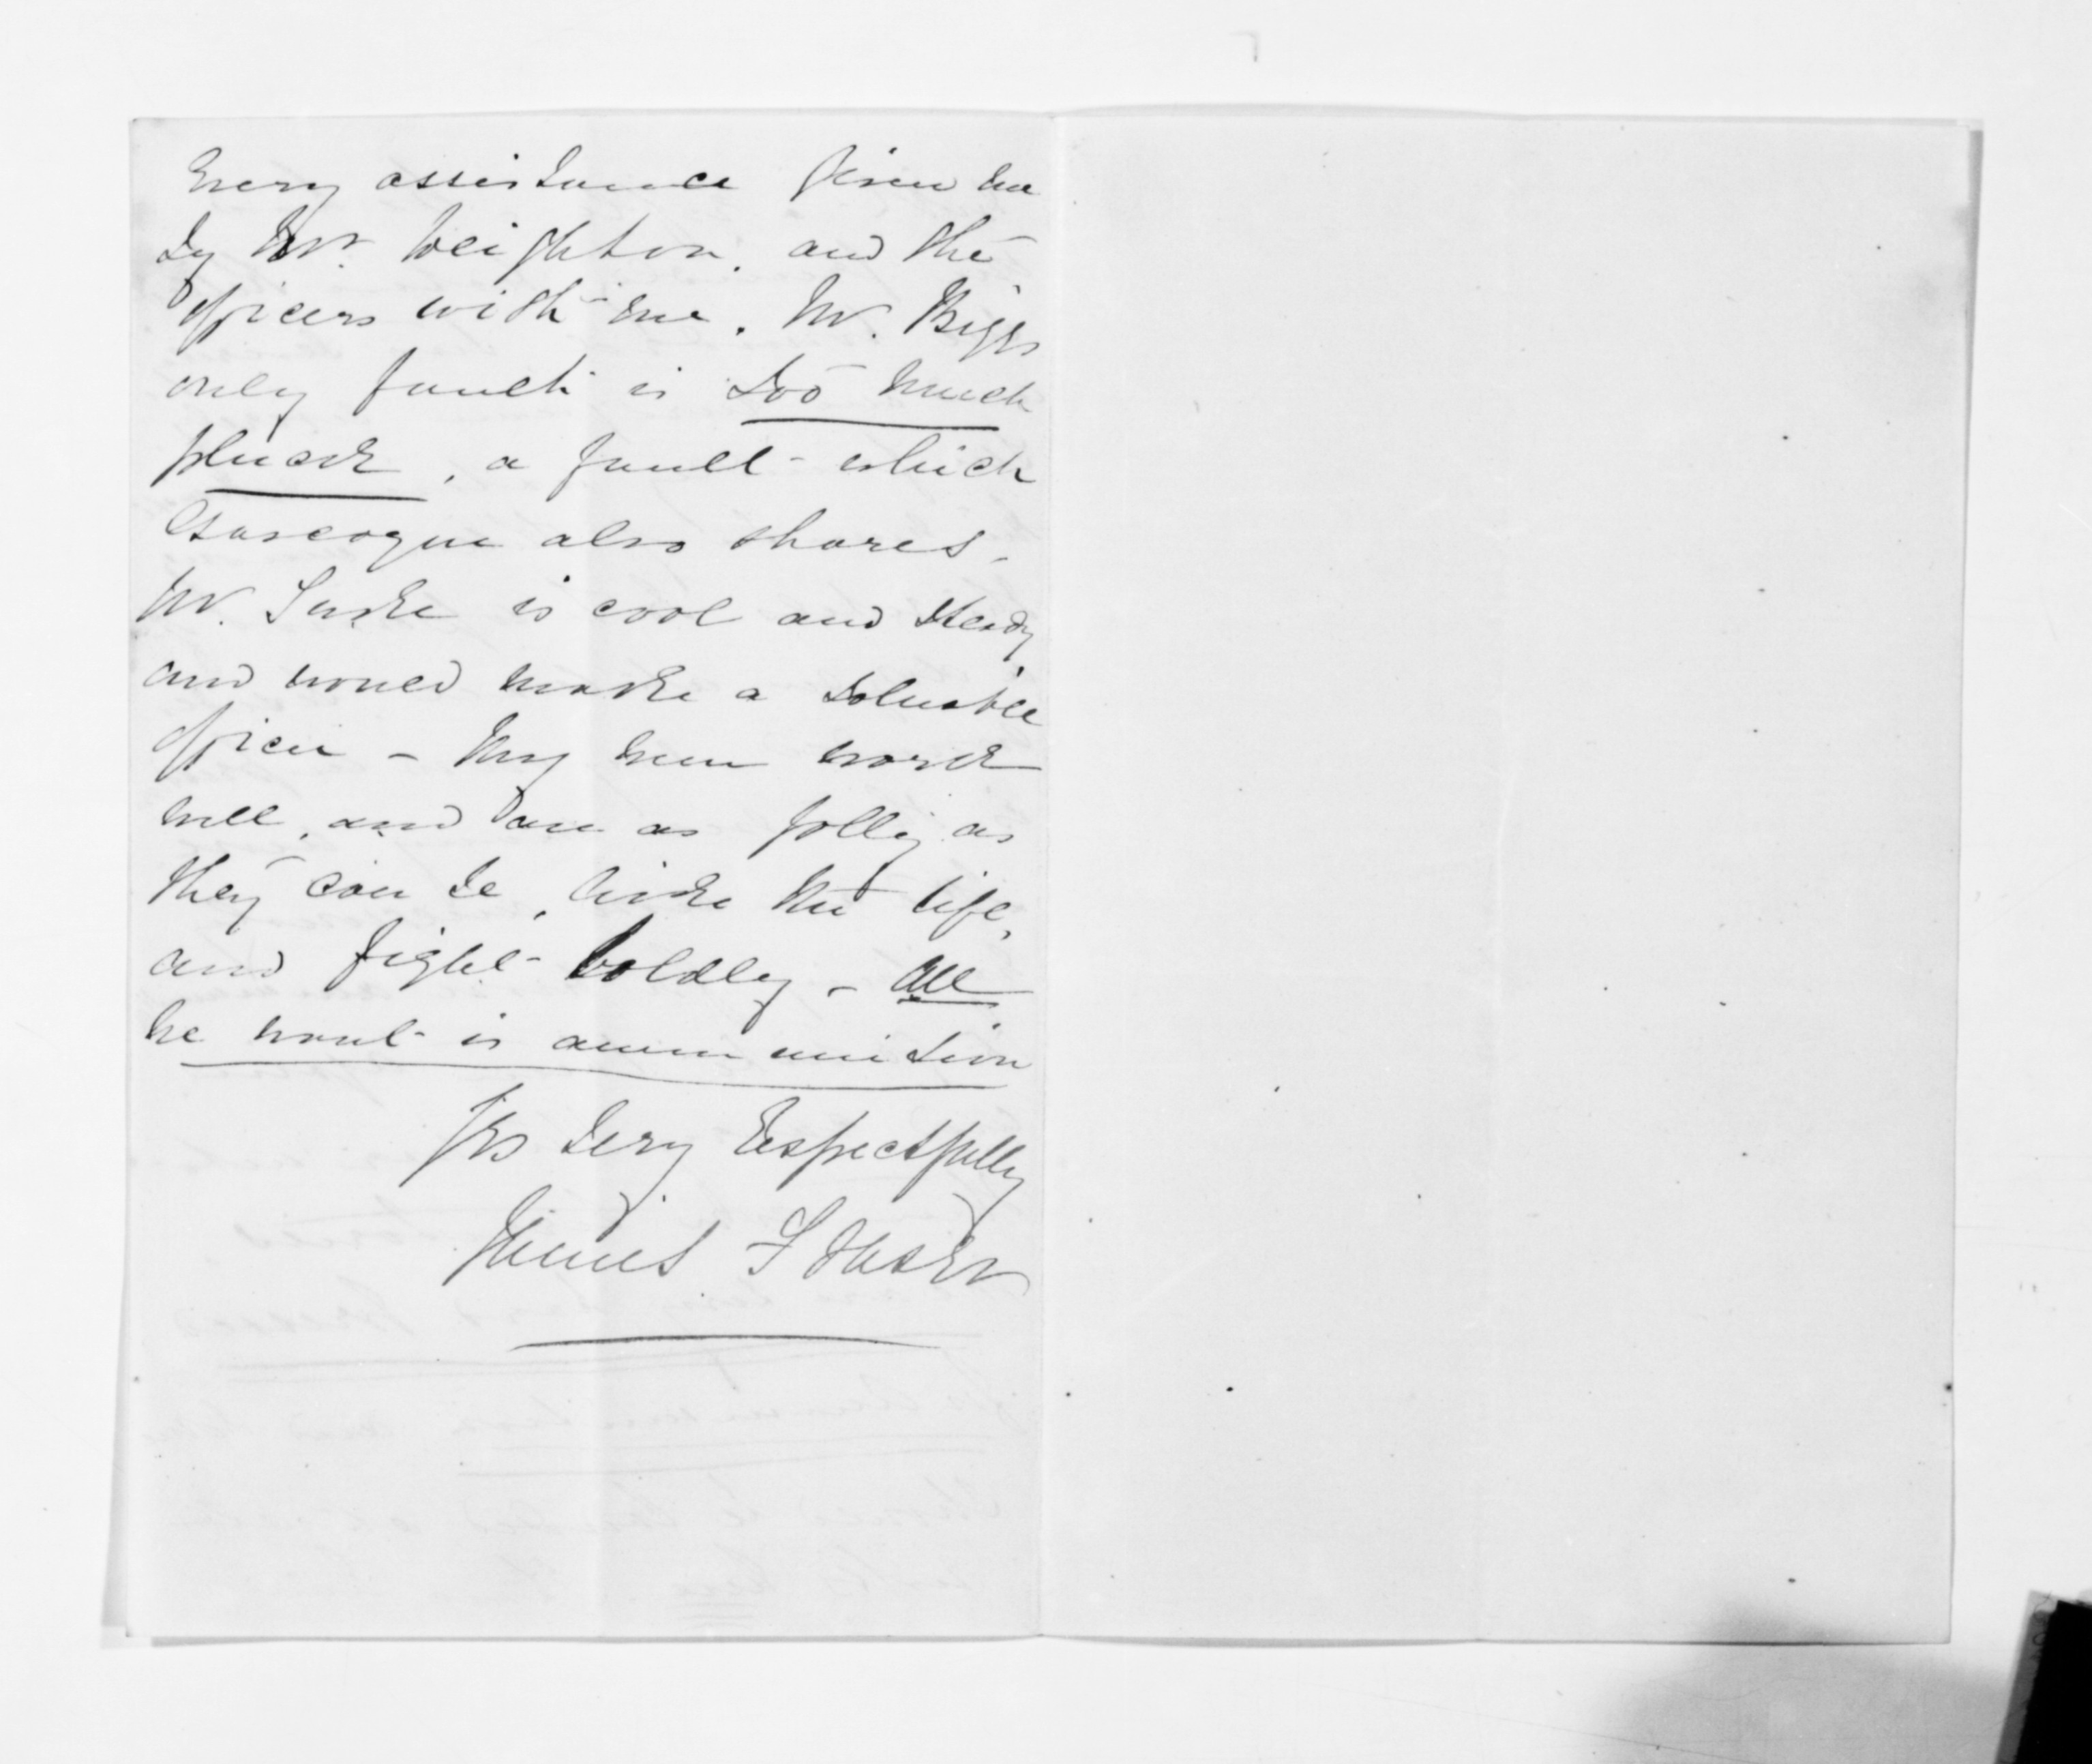 Every assistance given me
by Mr. Deighton, and the
officers with me. Mr. Biggs
only fault is too much
pluck, a fault which
Gascoyne also shares.
Mr. Tuke is cool and steady
and would make a valuable
officer – My men work
well, and are as jolly as
they can be, like the life,
and fight boldly – all
we want is ammunition
Yrs Very Respectfully
James Fraser